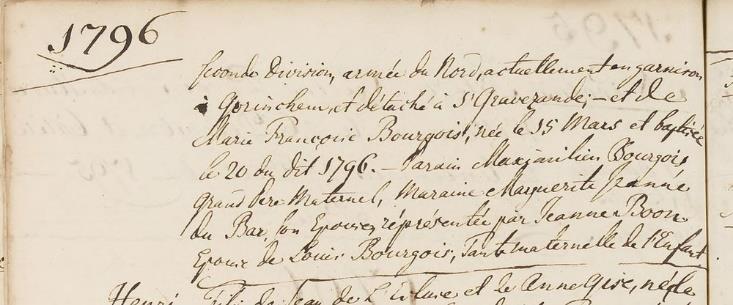 1796
seconde Division, armée du Nord, actuellement en garnison
à Gorinchem, et détaché à S'Gravezande; — et de
Marie Françoise Bourgois, née le 15 Mars et baptisée
le 20 du dit 1796. — Parain Maximilien Bourgois
grand Pere Maternel, Maraine Marguerite Jeanne
du Bar, son Epouse, réprésentée par Jeanne Boon
Epouse de Louis Bourgois, Tante maternelle de l'Enfant
Henri Fils de Jean de L'Ecluse et de Anne Gise, né le